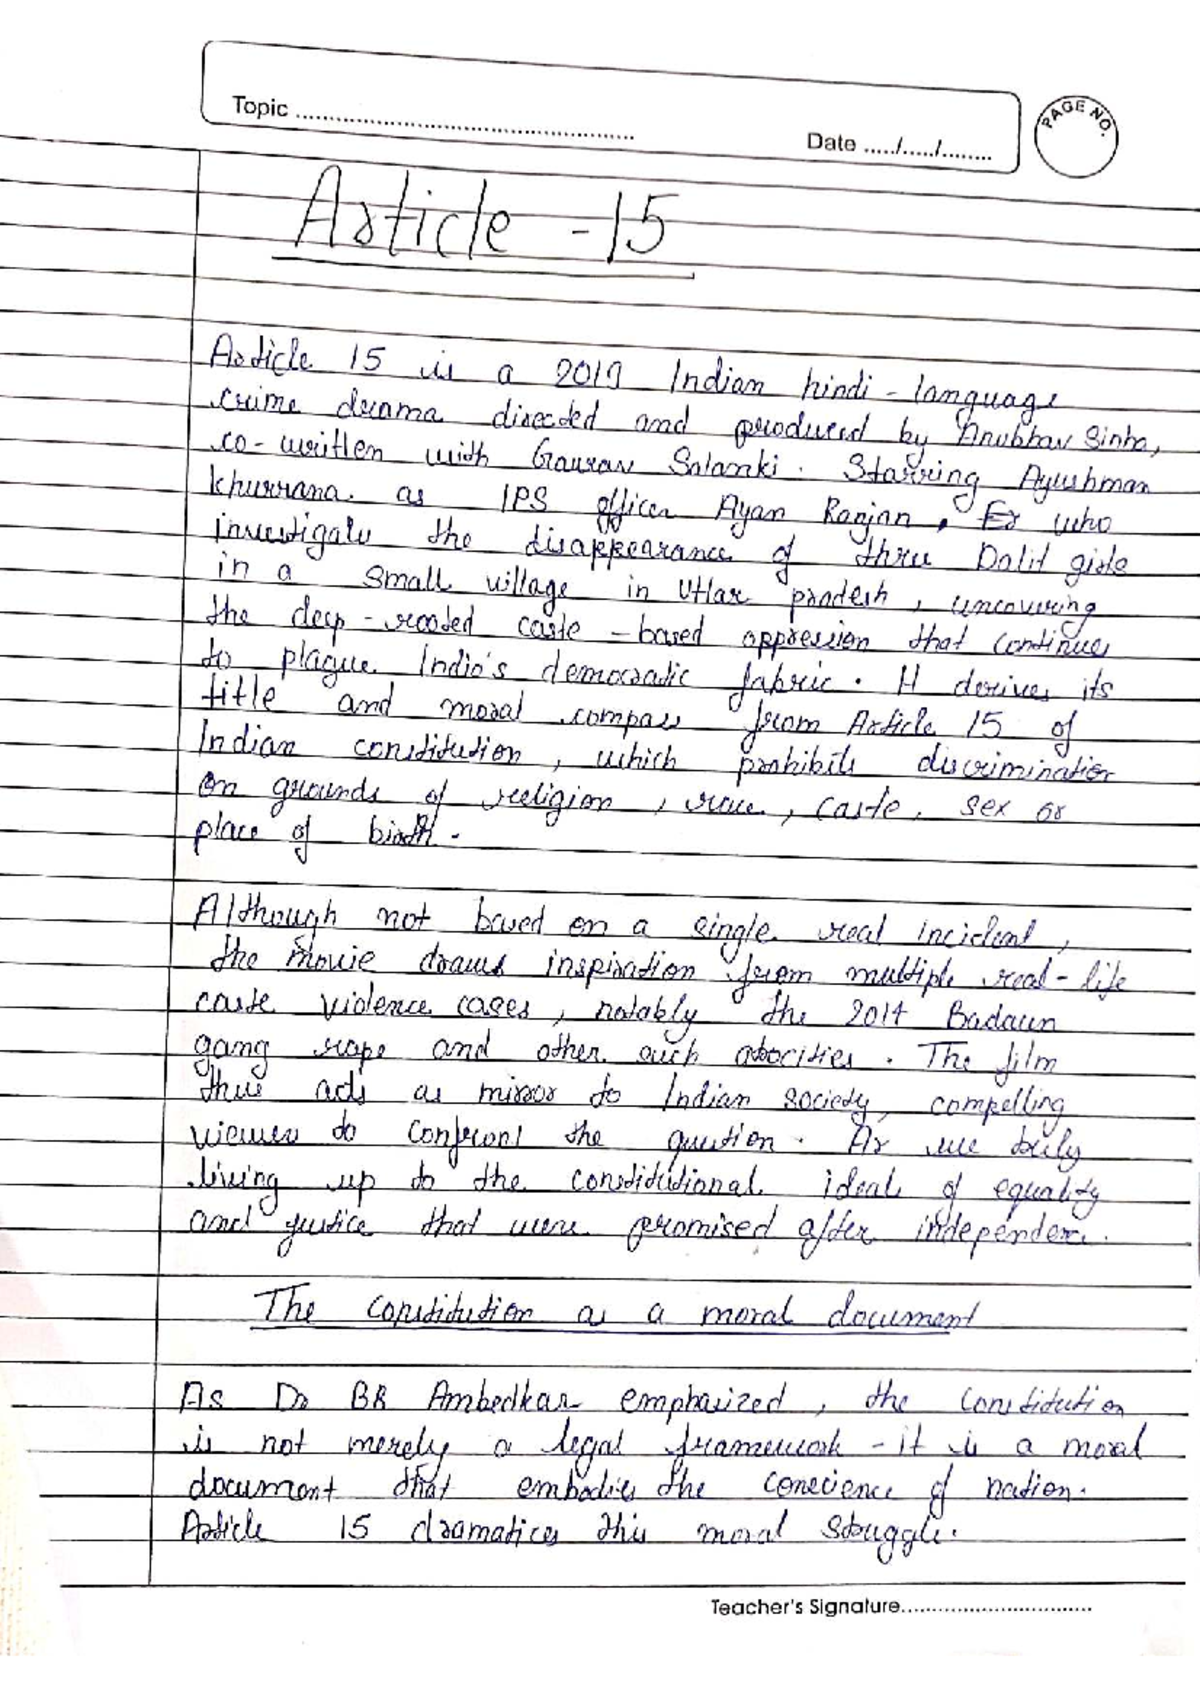 Topic ..........................................
Date ...../...../........
PAGE NO.
Article -15
Article 15 is a 2019 Indian hindi - language
crime drama directed and produced by Anubhav Sinha,
co-written with Gaurav Solanki. Starring Ayushman
khurrana as IPS officer Ayan Ranjan, who
investigate the disappearance of three Dalit girls
in a small village in Uttar pradesh, uncovering
the deep-rooted caste-based oppression that continues
to plague India's democratic fabric. It derives its
title and moral compass from Article 15 of
Indian constitution, which prohibits discrimination
on grounds of religion, race, caste, sex or
place of birth.
Although not based on a single real incident,
the movie draws inspiration from multiple real-life
caste violence cases, notably the 2014 Badaun
gang rape and other such atrocities. The film
thus acts as mirror to Indian society, compelling
viewers to confront the question. Are we truly
living up to the constitutional ideal of equality
and justice that were promised after independence.
The constitution as a moral document
As Dr BR Ambedkar emphasized, the constitution
is not merely a legal framework - it is a moral
document that embodies the conscience of nation.
Article 15 dramatices this moral struggle.
Teacher's Signature................................